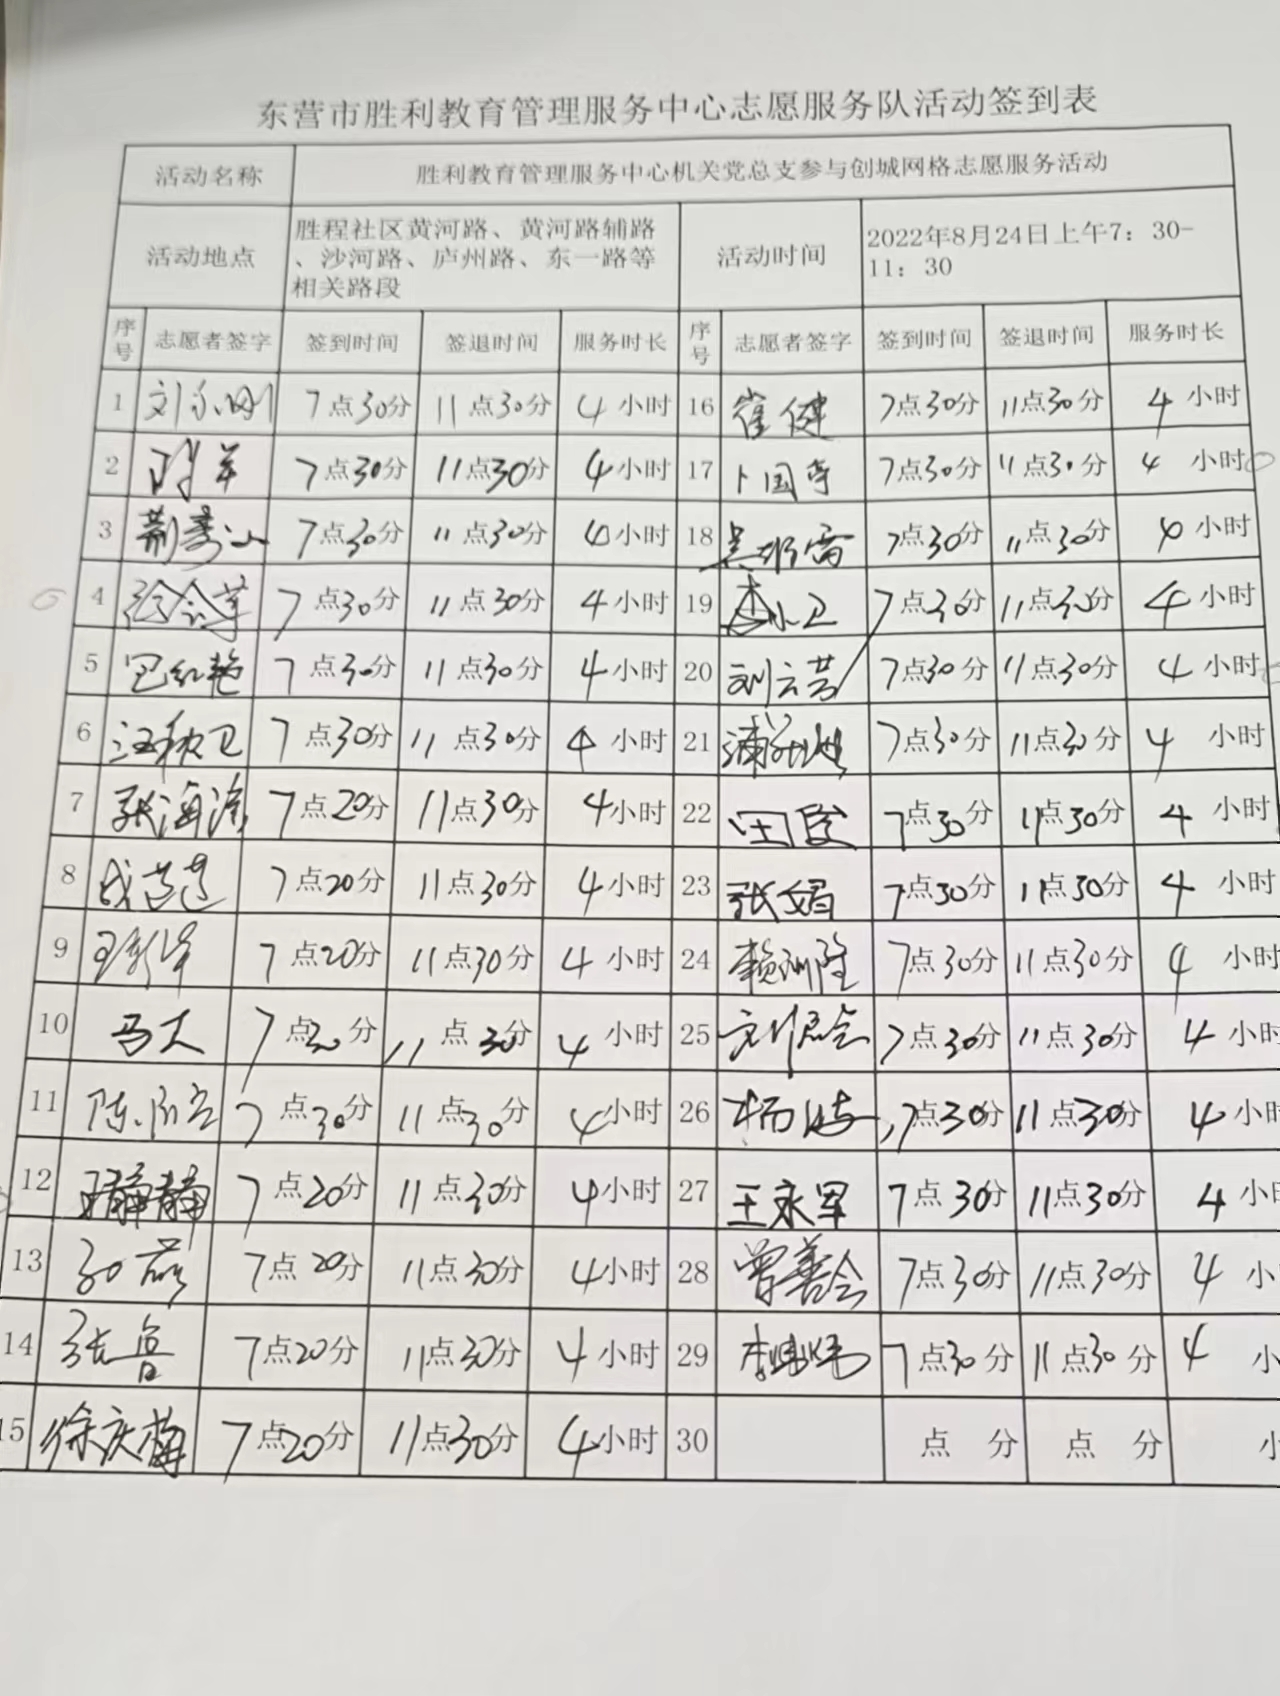 东营市胜利教育管理服务中心志愿服务队活动签到表
活动名称 胜利教育管理服务中心机关党总支参与创城网格志愿服务活动
活动地点 胜程社区黄河路、黄河路辅路
、沙河路、庐州路、东一路等
相关路段
活动时间 2022年8月24日上午7：30-
11：30
序号 志愿者签字 签到时间 签退时间 服务时长 序号 志愿者签字 签到时间 签退时间 服务时长
1 7点30分 11点30分 4小时 16 崔健 7点30分 11点30分 4小时
2 7点30分 11点30分 4小时 17 卜国奇 7点30分 11点30分 4小时
3 7点30分 11点30分 4小时 18 7点30分 11点30分 4小时
4 7点30分 11点30分 4小时 19 李小卫 7点30分 11点30分 4小时
5 巴红艳 7点30分 11点30分 4小时 20 刘云芸 7点30分 11点30分 4小时
6 汪秋卫 7点30分 11点30分 4小时 21 7点30分 11点30分 4小时
7 张海涛 7点20分 11点30分 4小时 22 7点30分 11点30分 4小时
8 7点20分 11点30分 4小时 23 张娟 7点30分 11点30分 4小时
9 7点20分 11点30分 4小时 24 7点30分 11点30分 4小时
10 马大 7点30分 11点30分 4小时 25 7点30分 11点30分 4小时
11 7点30分 11点30分 4小时 26 7点30分 11点30分 4小时
12 王静静 7点20分 11点30分 4小时 27 王永军 7点30分 11点30分 4小时
13 7点20分 11点30分 4小时 28 曾善会 7点30分 11点30分 4小
14 张鲁 7点20分 11点30分 4小时 29 李炜炜 7点30分 11点30分 4小
15 徐庆梅 7点20分 11点30分 4小时 30 点 分 点 分 小